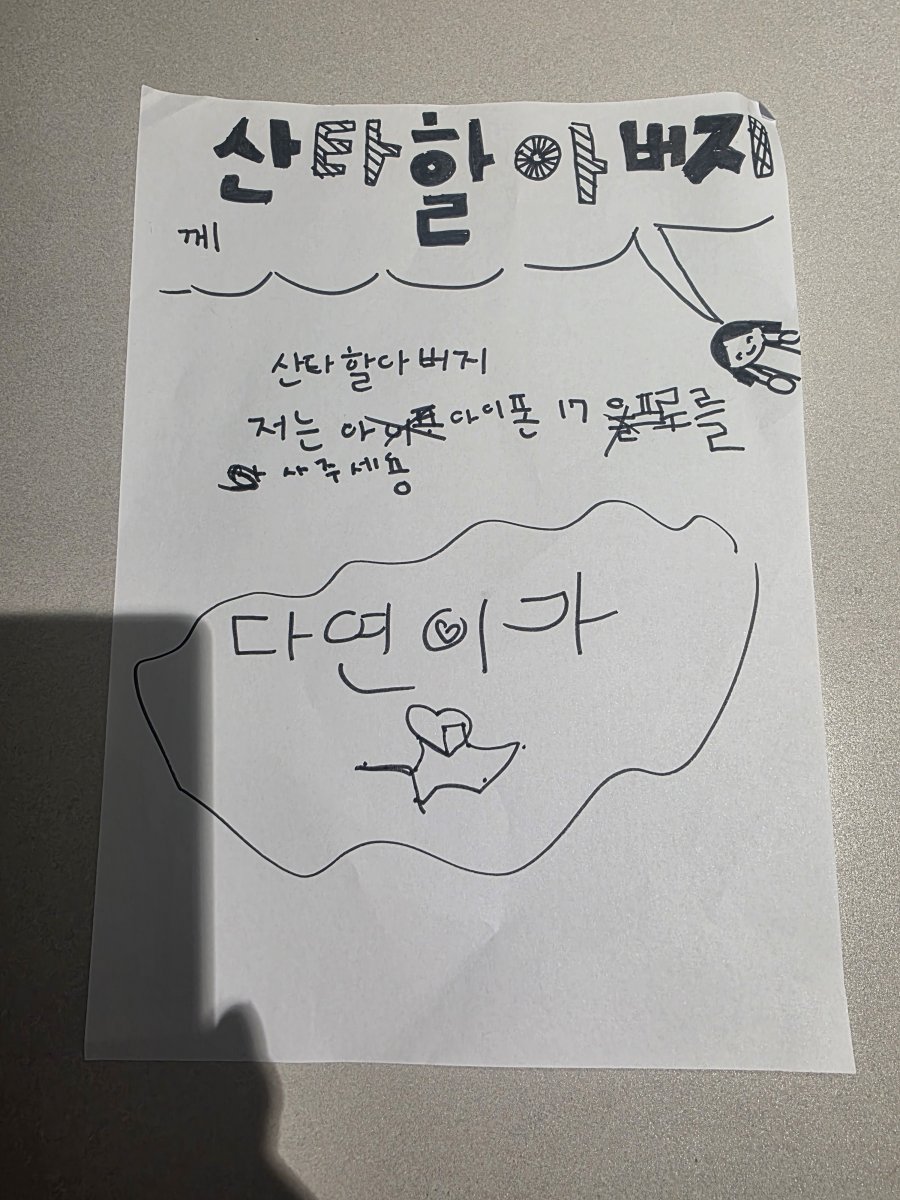 산타할아버지
께
산타할다버지
저는 아이폰 17 프로를
사주세용
다연이가